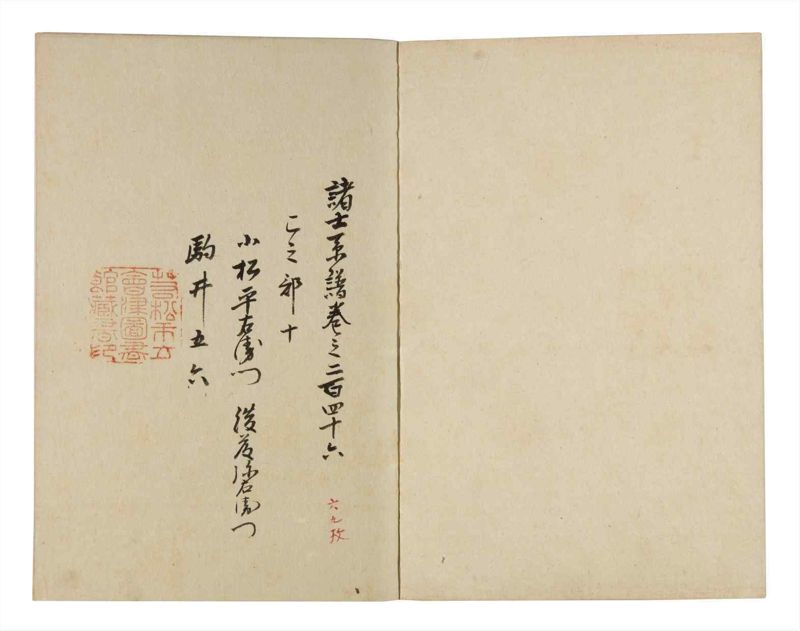 諸士系譜巻之二百四十六
六九枚
己之部十
小松平右衛門　後藤弥右衛門
駒井五六
若松市立
會津圖書
館藏書印